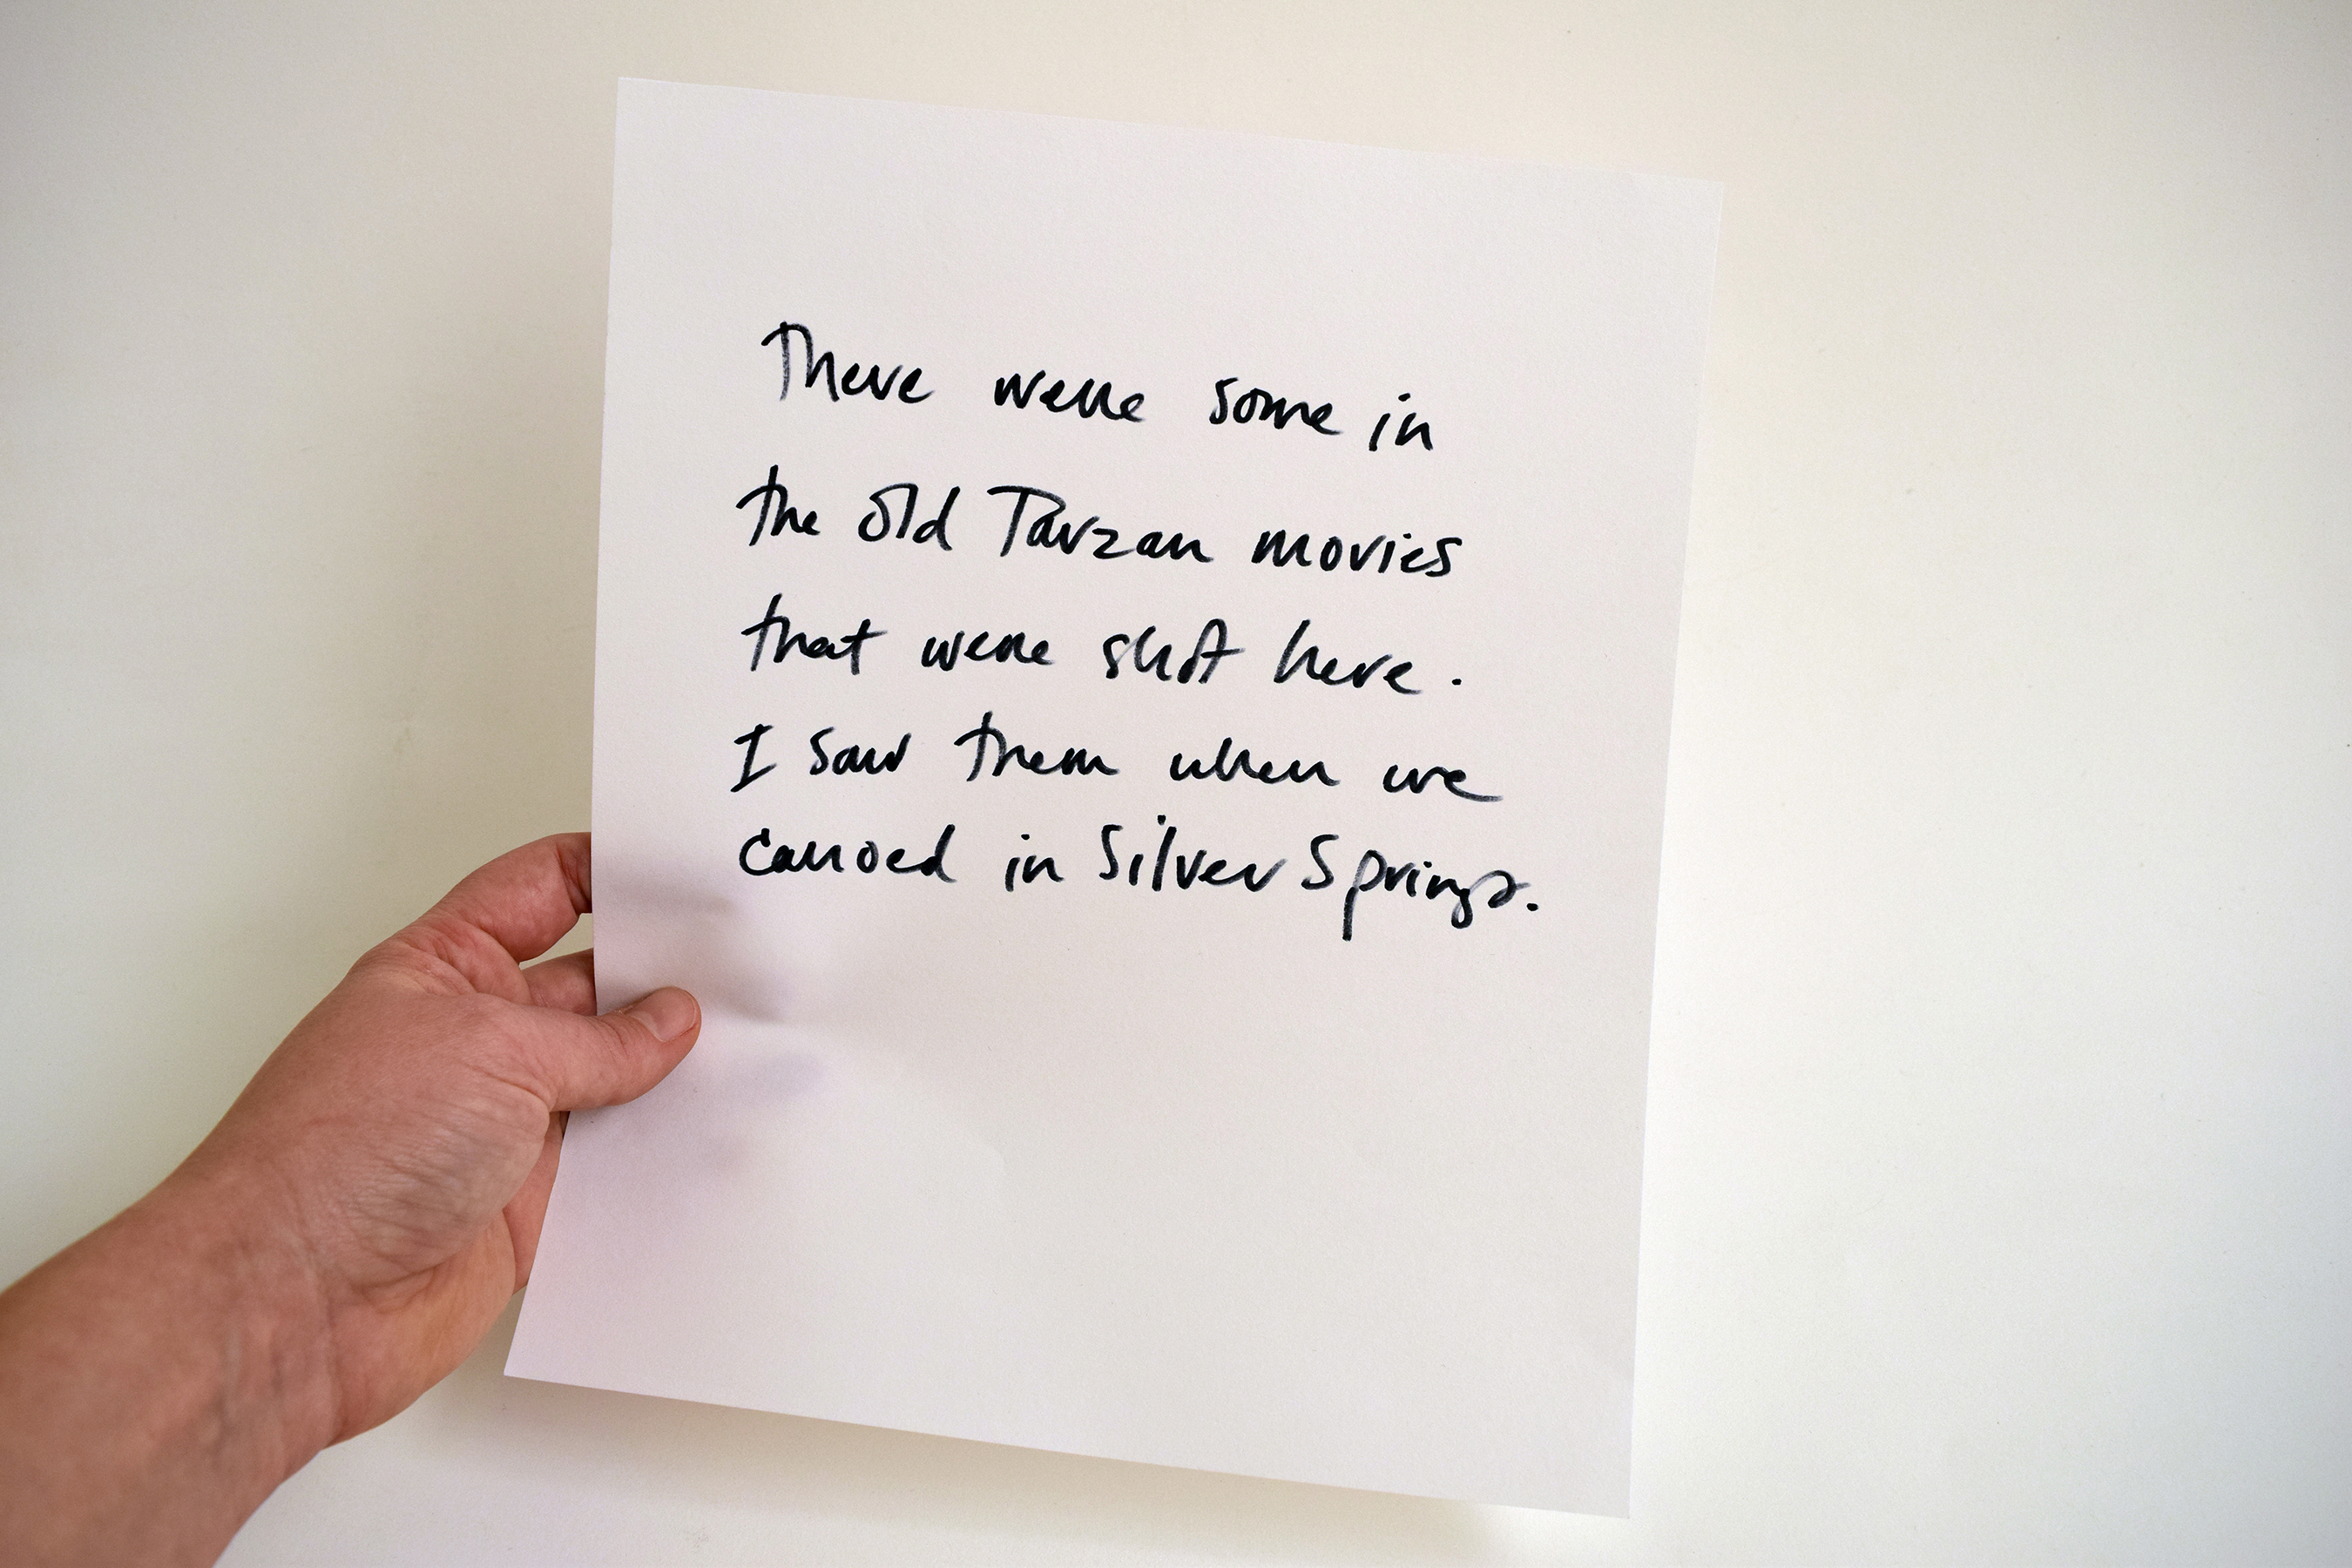 There were some in
the old Tarzan movies
that were shot here.
I saw them when we
canoed in Silver Springs.